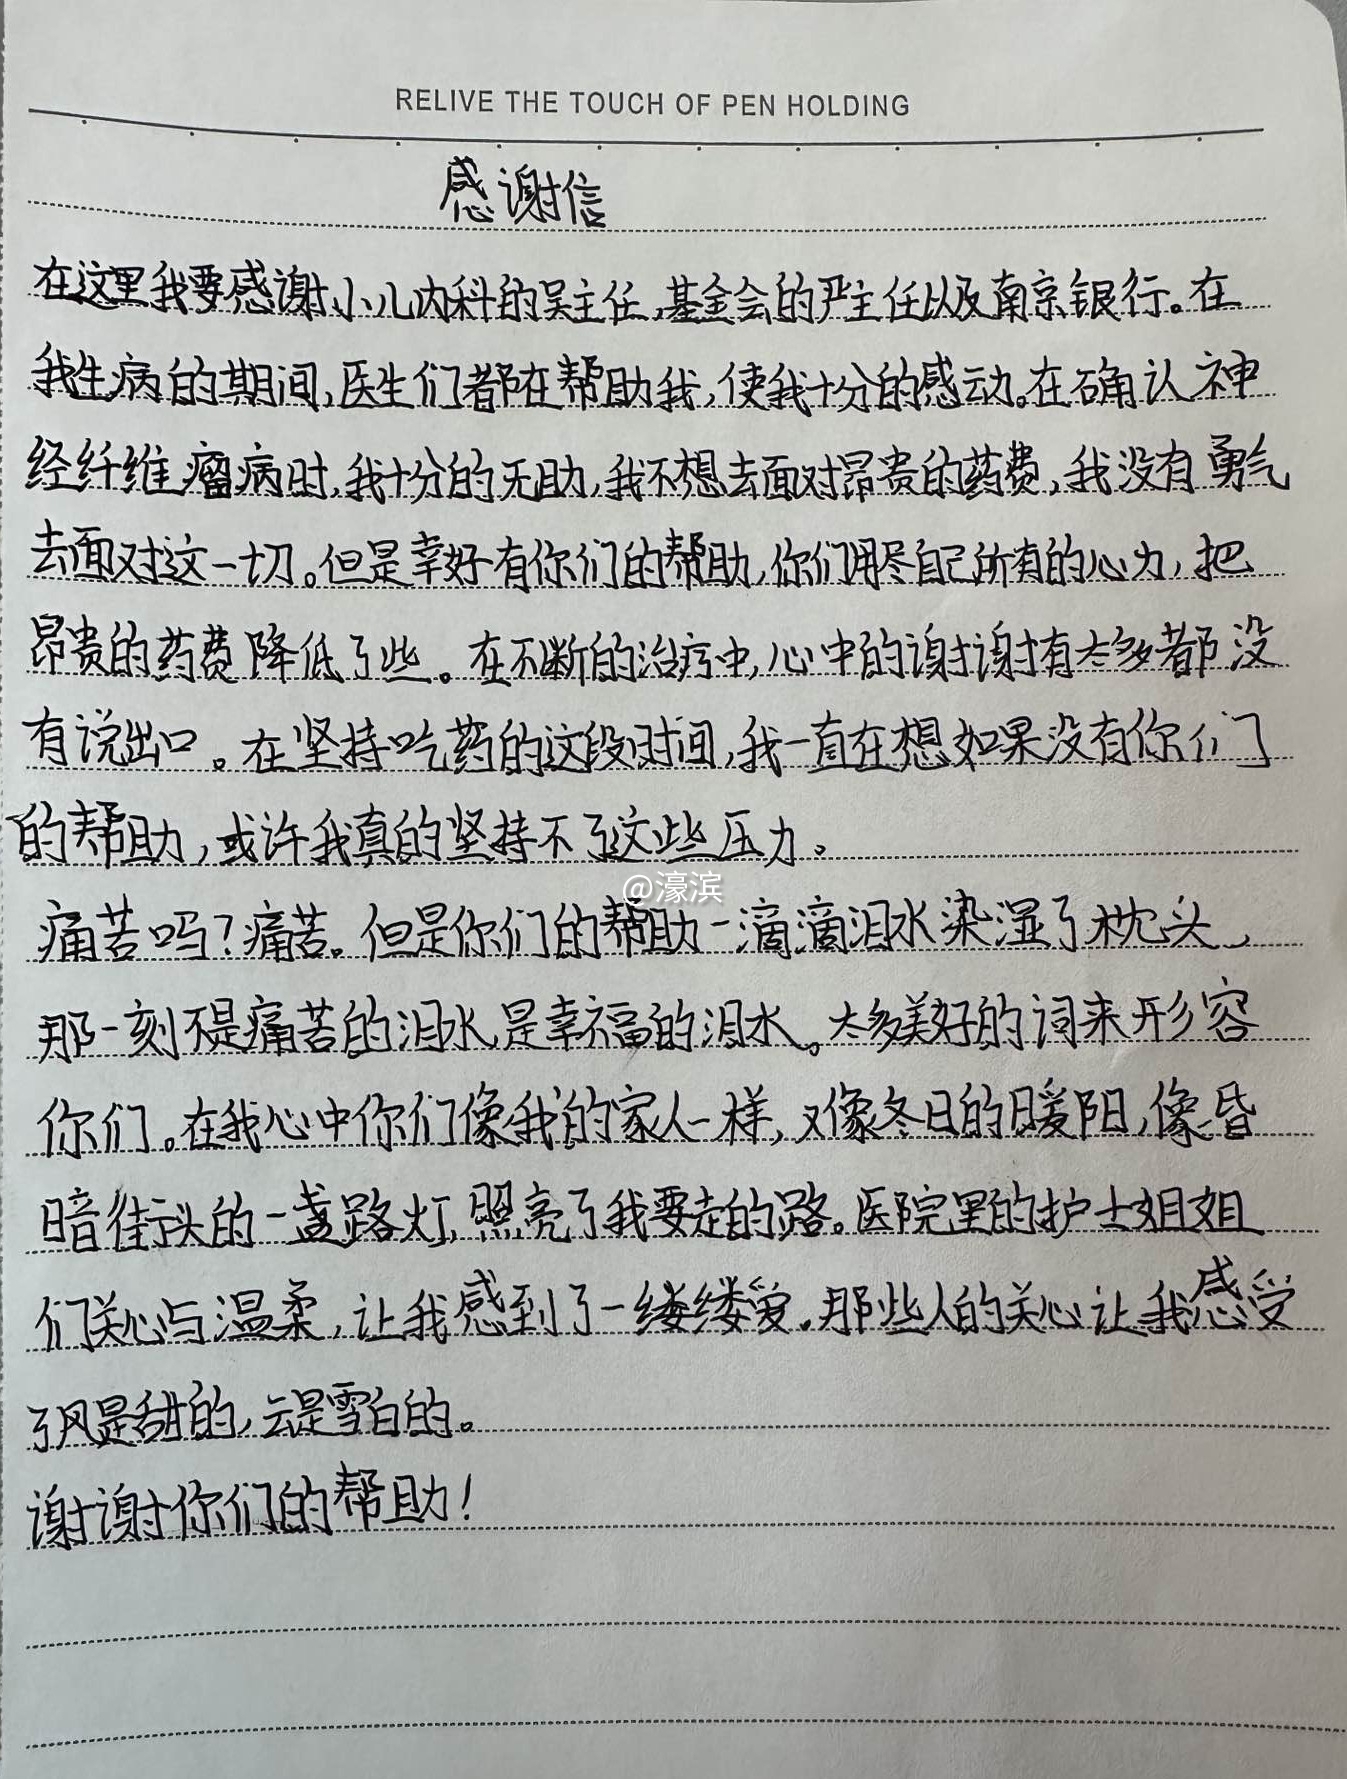 RELIVE THE TOUCH OF PEN HOLDING
感谢信
在这里我要感谢小儿内科的吴主任,基金会的严主任以及南京银行。在
我生病的期间,医生们都在帮助我,使我十分的感动。在确认神
经纤维瘤病时,我十分的无助,我不想去面对昂贵的药费,我没有勇气
去面对这一切。但是幸好有你们的帮助,你们用尽自己所有的心力,把
昂贵的药费降低了些。在不断的治疗中,心中的谢谢有太多都没
有说出口。在坚持吃药的这段时间,我一直在想如果没有你们
的帮助,或许我真的坚持不了这些压力。
@濠滨
痛苦吗?痛苦。但是你们的帮助一滴滴泪水染湿了枕头、
那一刻不是痛苦的泪水,是幸福的泪水。太多美好的词来形容
你们。在我心中你们像我的家人一样,又像冬日的暖阳,像昏
暗街头的一盏路灯,照亮了我要走的路。医院里的护士姐姐
们关心与温柔,让我感到了一缕缕爱。那些人的关心让我感受
了风是甜的,云是雪白的。
谢谢你们的帮助!